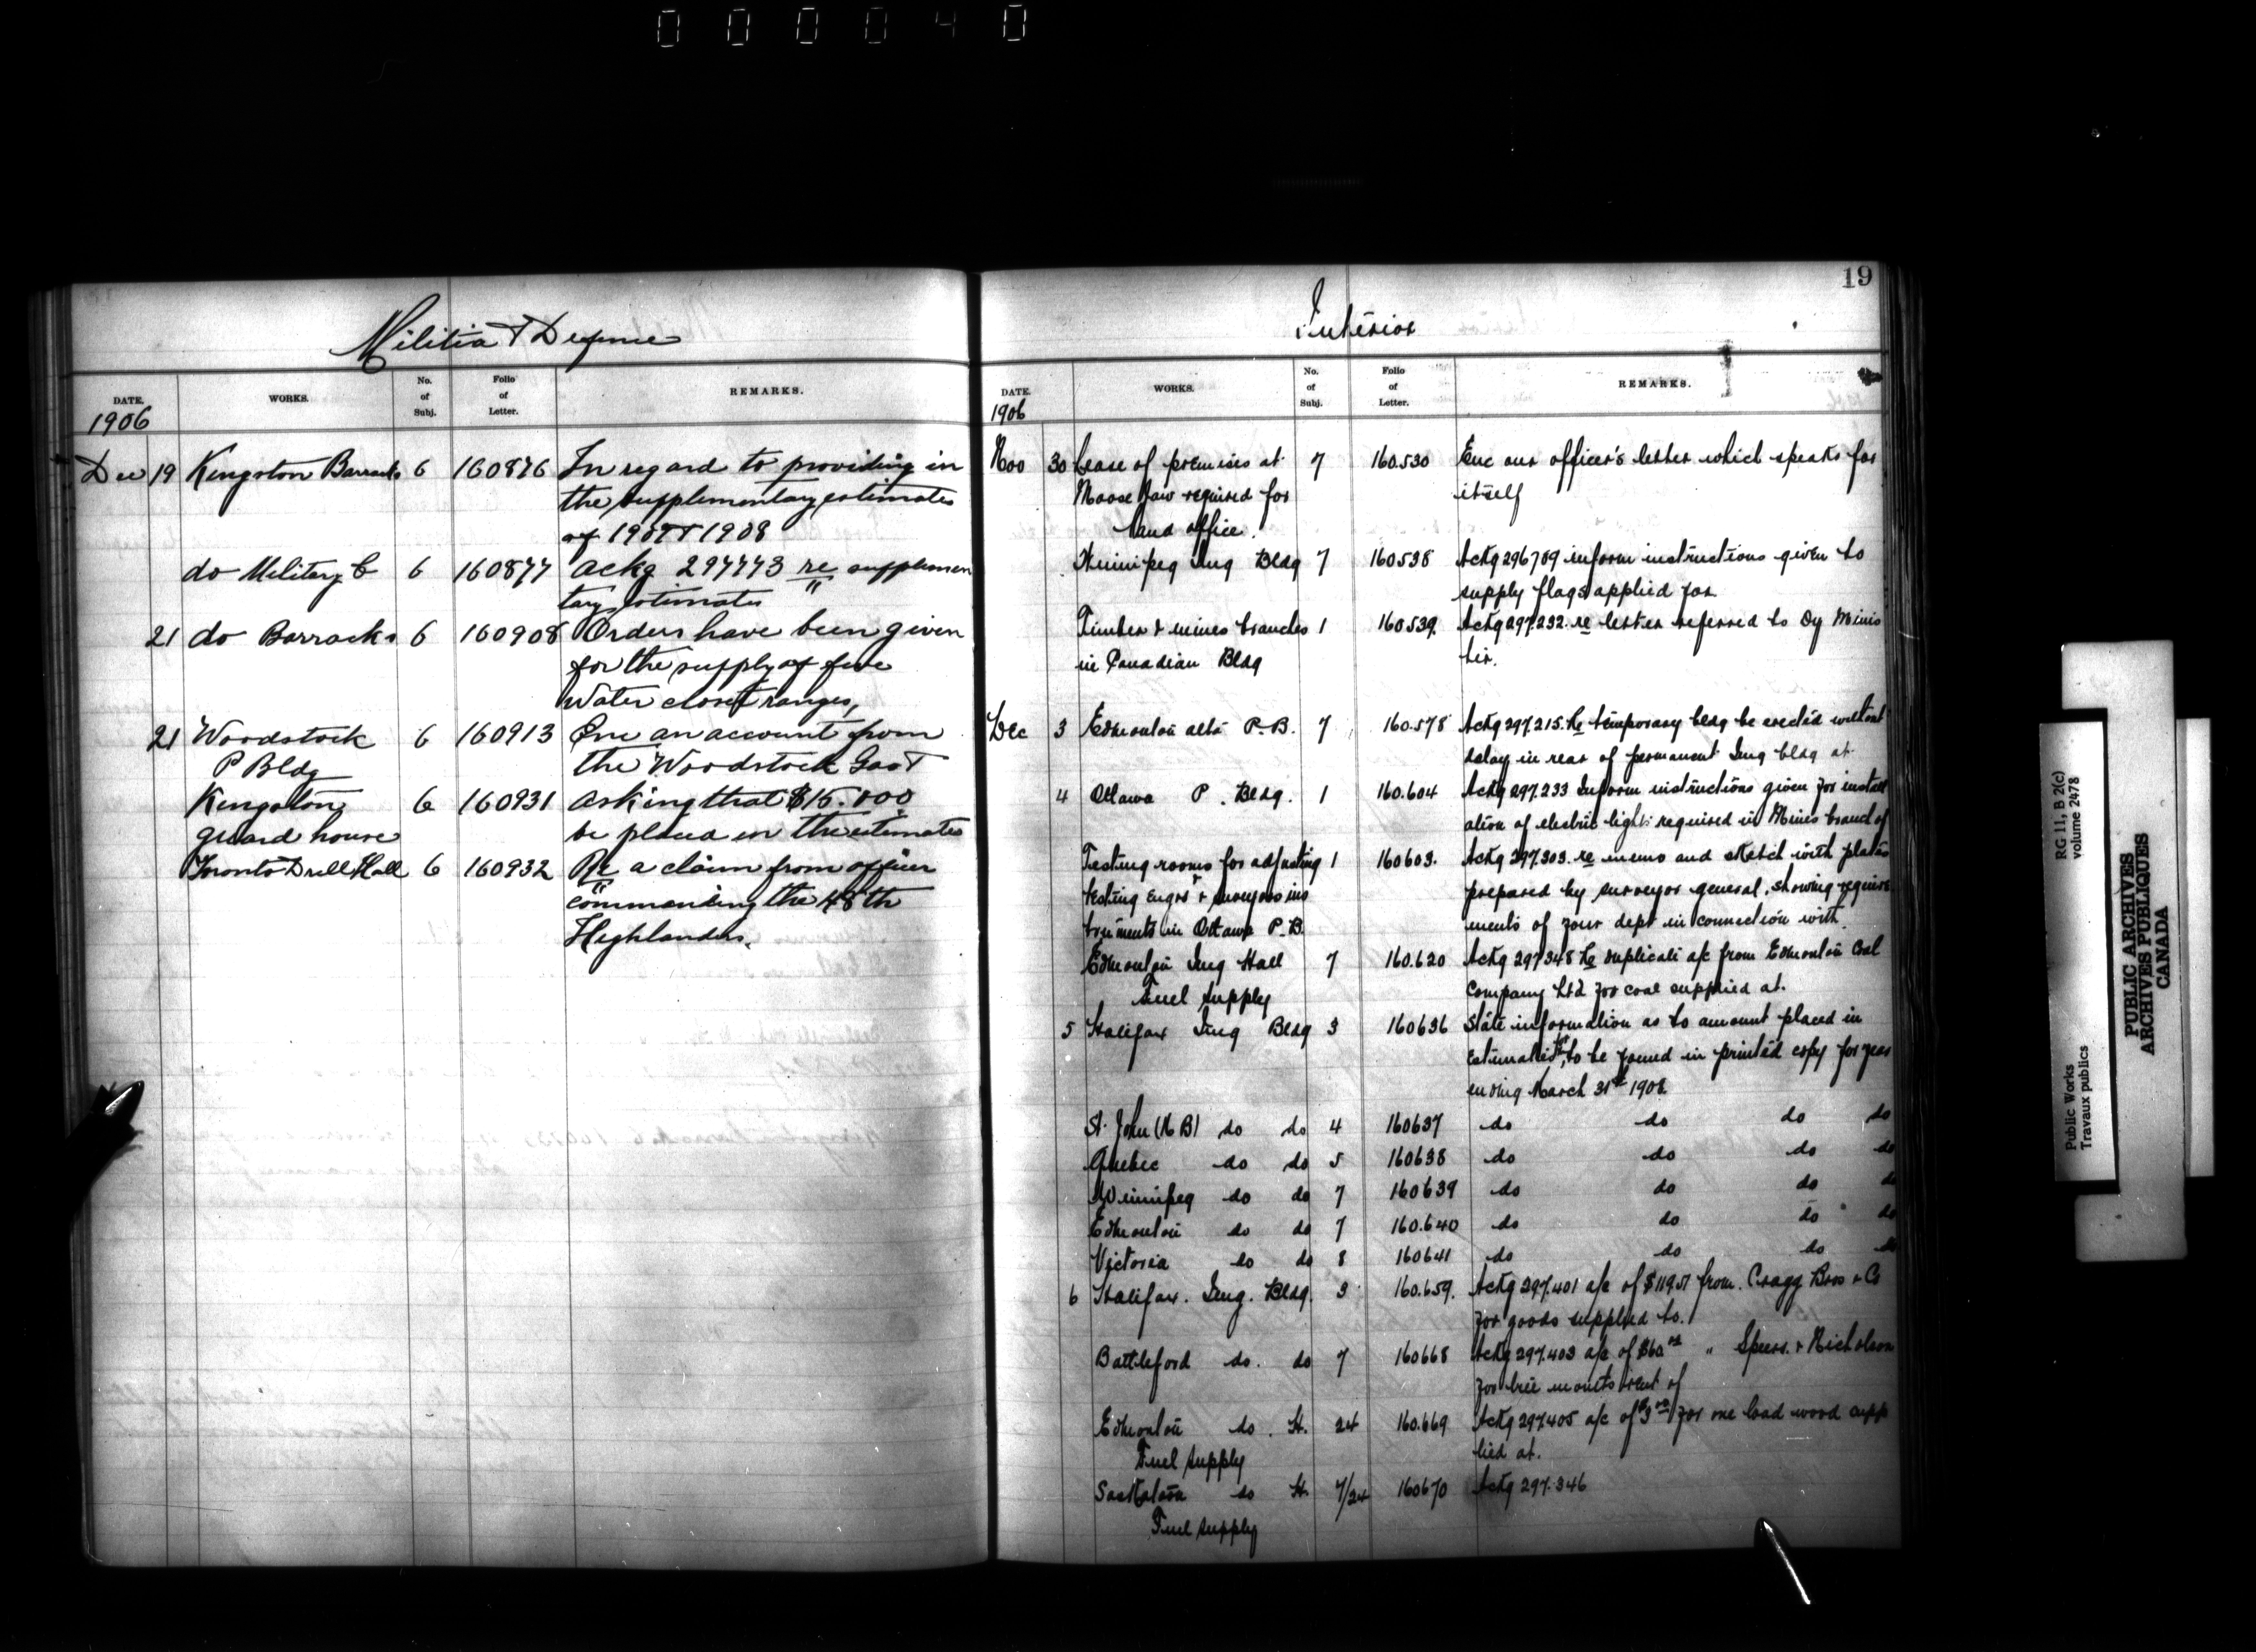 000040
Militia & Defence
DATE. WORKS. No. of Subj. Folio of Letter. REMARKS.
1906
Dec 19 Kingston Barracks 6 160876 In regard to providing in
the supplementary estimates
of 1907 & 1908
do Military C 6 160877 Ackg 297773 re supplemen
tary estimates
21 do Barracks 6 160908 Orders have been given
for the supply of five
Water closet ranges,
21 Woodstock 6 160913 Enc an account from
P Bldg the Woodstock
Kingston 6 160931 asking that $15.000
guard house be placed in the estimates
Toronto Drill Hall 6 160932 Re a claim from officer
commanding the 48th
Highlanders.
19
Interior
DATE. WORKS. No. of Subj. Folio of Letter. REMARKS.
1906
Nov 30 Lease of premises at 7 160.530 Enc our officer's letter which speaks for
Moose Jaw required for itself
land office.
Winnipeg Img Bldg 7 160538 Ackg 296789 inform instructions given to
supply flags applied for.
Timber & mines branches 1 160539. Ackg 297.232. re letter referred to Dy Minis
in Canadian Bldg ter.
Dec 3 Edmonton alta P.B. 7 160.578 Ackg 297.215. Re temporary bldg be erected without
delay in rear of permanent Img bldg at
4 Ottawa P. Bldg. 1 160.604 Ackg 297.233 Inform instructions given for install
ation of electric light required in Mines branch of
Testing rooms for adjusting 1 160603. Ackg 297.303. re memo and sketch with plates
& testing Engrs & surveyors ins prepared by surveyor general, showing require
truments in Ottawa P.B. ments of your dept in connection with
Edmonton Img Hall 7 160.620 Ackg 297348 Re duplicate a/c from Edmonton Coal
Fuel Supply Company Ltd for coal supplied at.
5 Halifax Img Bldg 3 160636 State information as to amount placed in
Estimates for, to be found in printed copy for year
ending March 31st 1908.
St. John (N B) do do 4 160637 do do do do
Quebec do do 5 160638 do do do do
Winnipeg do do 7 160639 do do do do
Edmonton do do 7 160.640 do do do do
Victoria do do 8 160641 do do do do
6 Halifax. Img. Bldg. 3 160.659. Ackg 297.401 a/c of $119.51 from. Cragg Bros & Co
for goods supplied to.
Battleford do. do 7 160668 Ackg 297.403 a/c of $60 00 " Speers. & Nicholson
for three months rent of
Edmonton do. H. 24 160.669 Ackg 297.405 a/c of $3 00 for one load wood supp
Fuel supply lied at.
Saskatoon do H. 7/24 160670 Ackg 297.346
Fuel supply
Public Works
Travaux publics
RG 11, B 2(c)
volume 2478
PUBLIC ARCHIVES
ARCHIVES PUBLIQUES
CANADA